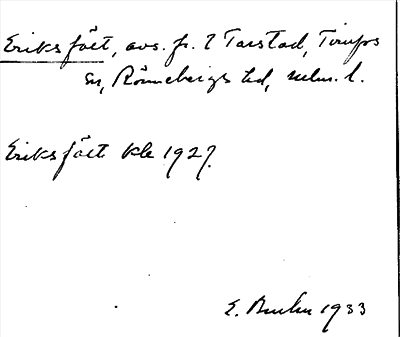 Eriksfält, avs. fr. 2 Tarstad, Tirups
sn, Rönnebergs hd, Malm. l.
Eriksfält kk 1927.
E. 1933